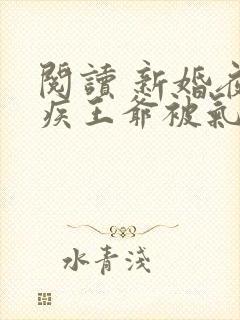 閱讀 新婚
疾王爺被氣
水青淺